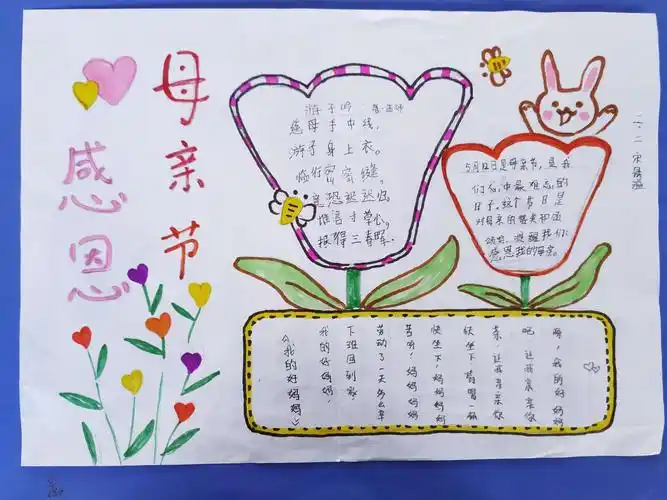 母亲节
感恩
游子吟 唐·孟郊
慈母手中线,
游子身上衣。
临行密密缝,
意恐迟迟归。
谁言寸草心,
报得三春晖。
5月12日是母亲节,是我
们心中最难忘的
日子。这个节日是
对母亲的赞美和
提醒我们
感恩我的母亲。
《我的好妈妈》
我的好妈妈,
下班回到家
劳动了一天多么辛
苦呀!妈妈妈妈
快坐下,妈妈妈妈
快坐下请喝一杯
茶,让我亲亲你
吧 让我亲亲你
啊,我的好妈妈